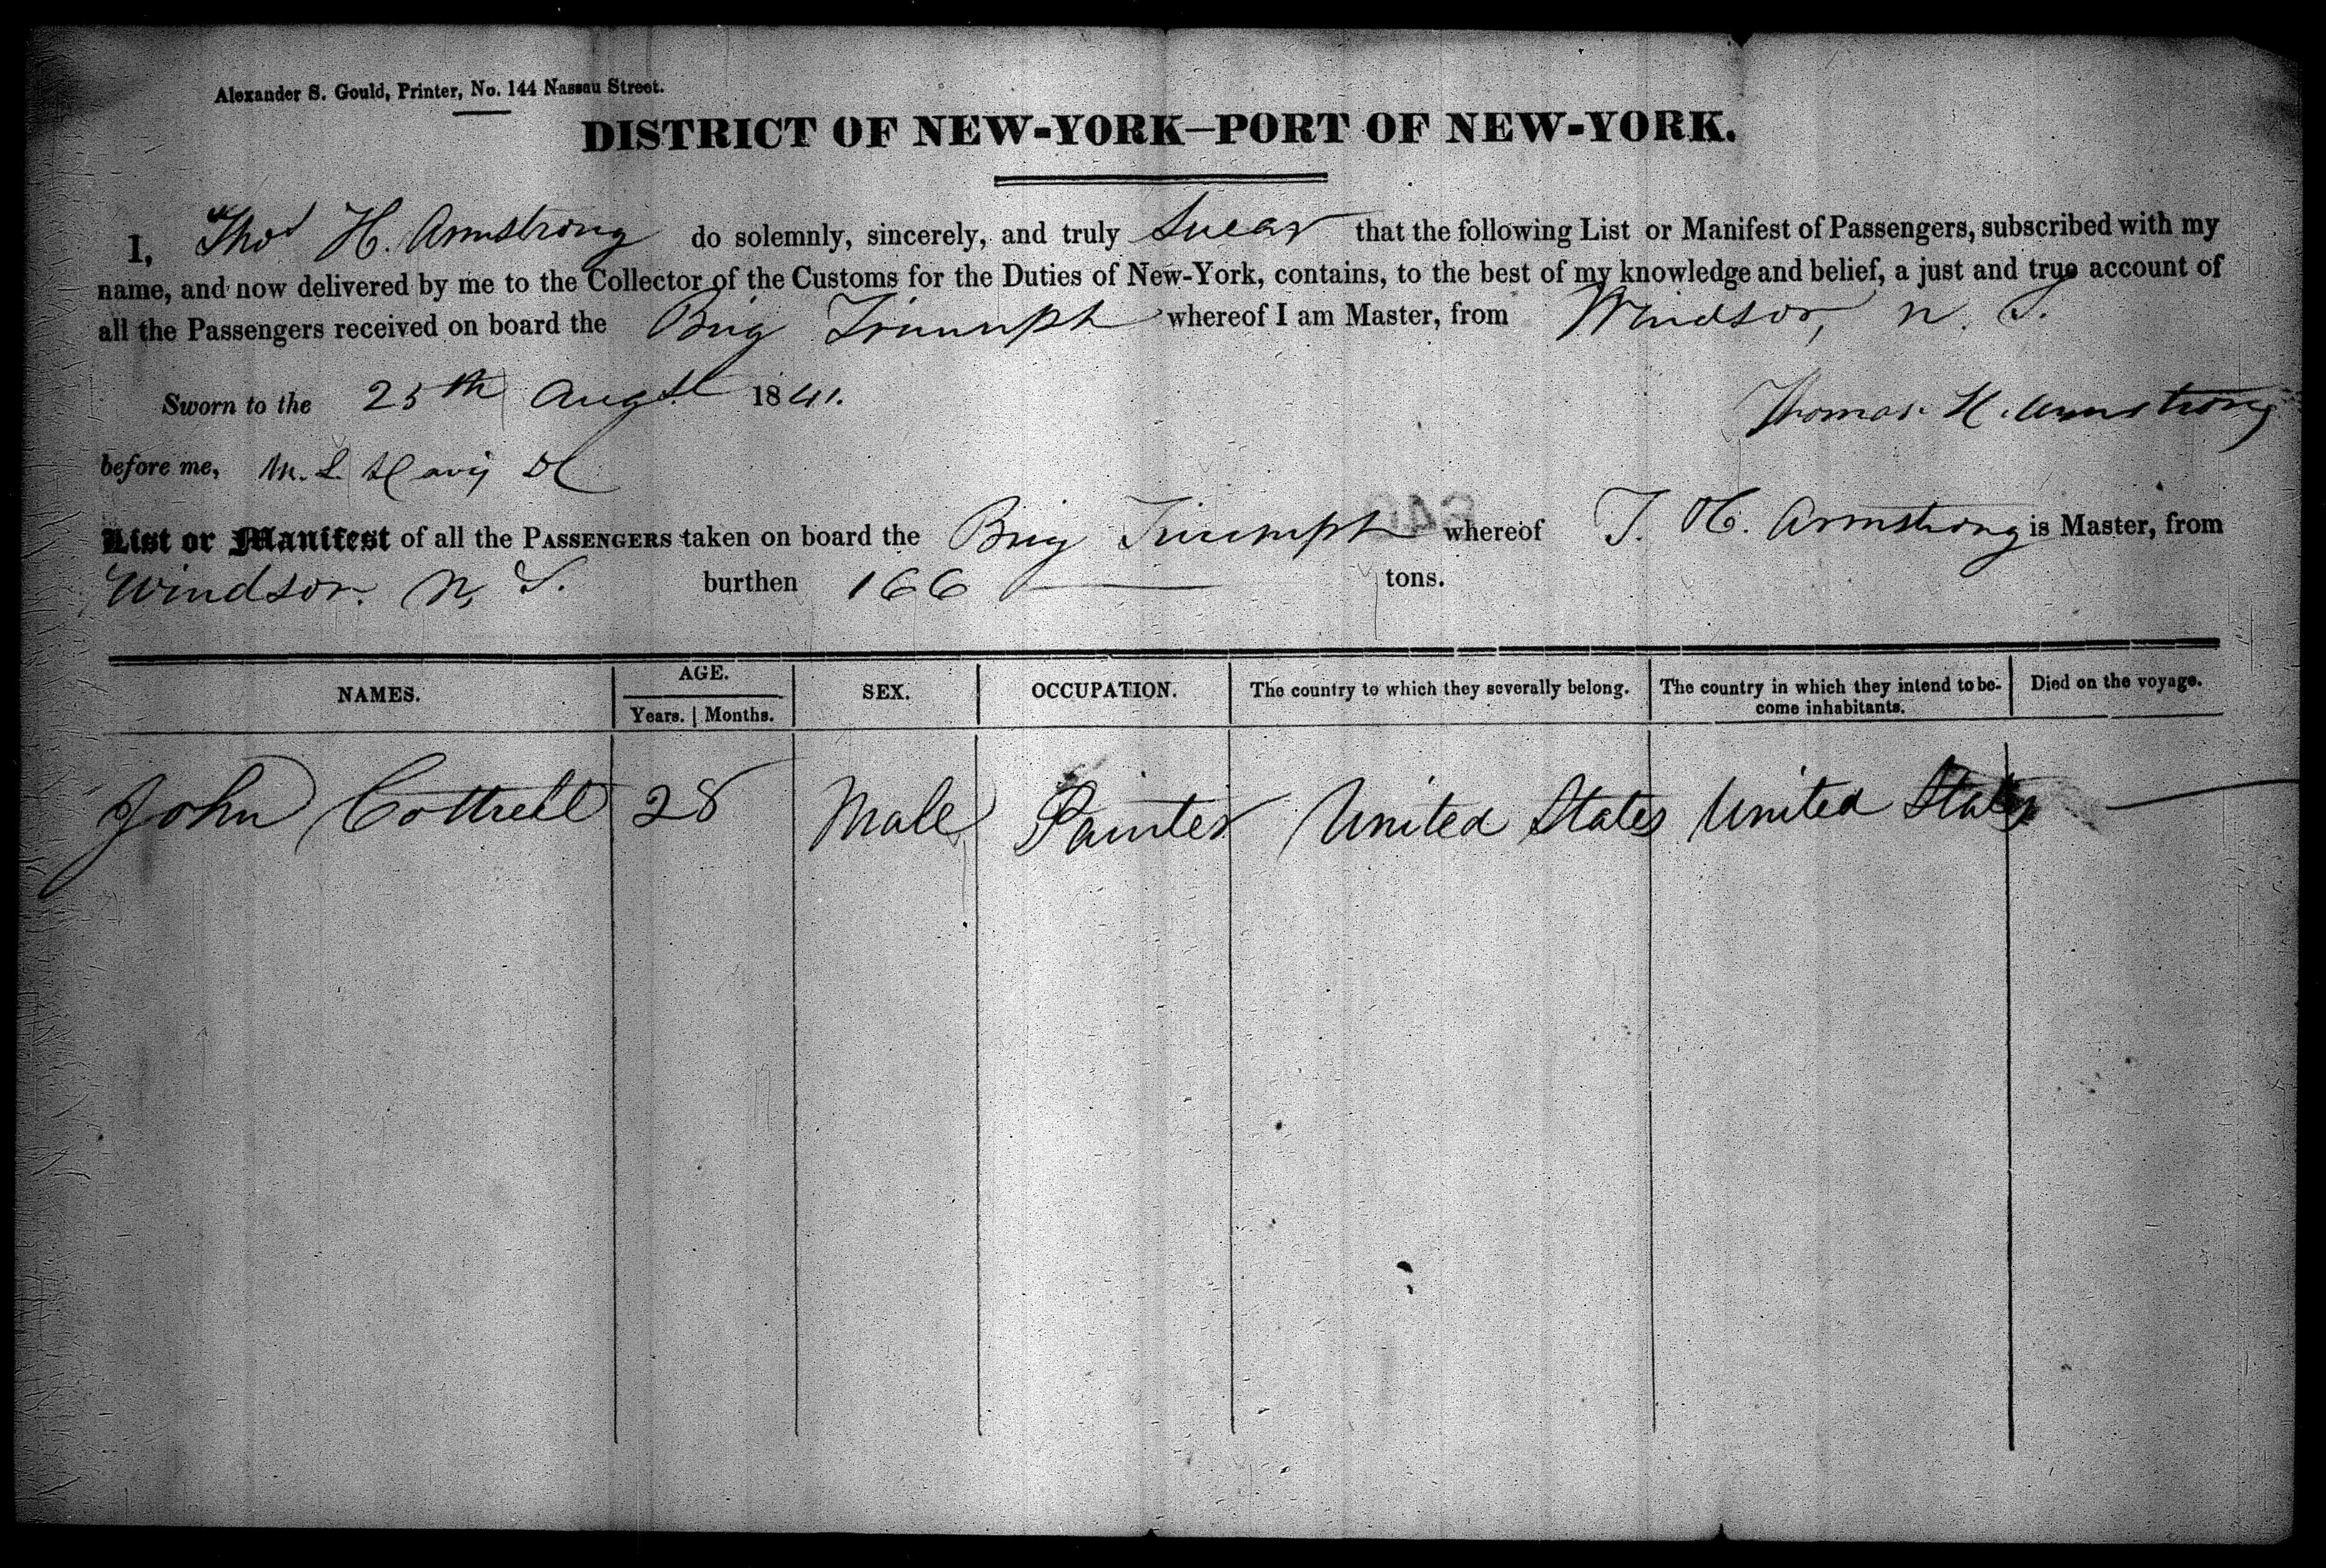 Alexander S. Gould, Printer, No. 144 Nassau Street.
DISTRICT OF NEW-YORK—PORT OF NEW-YORK.
I, Thos H. Armstrong do solemnly, sincerely, and truly Swear that the following List or Manifest of Passengers, subscribed with my
name, and now delivered by me to the Collector of the Customs for the Duties of New-York, contains, to the best of my knowledge and belief, a just and true account of
all the Passengers received on board the Brig Triumph whereof I am Master, from Windsor, N. S.
Sworn to the 25th Augt 1841.
Thomas H. Armstrong
before me, M. L.
List or Manifest of all the PASSENGERS taken on board the Brig Triumph whereof T. H. Armstrong is Master, from
Windsor. N. S. burthen 166 tons.
NAMES. AGE. SEX. OCCUPATION. The country to which they severally belong. The country in which they intend to be- Died on the voyage.
Years. Months. come inhabitants.
John Cottrell 28 Male Painter United States United States